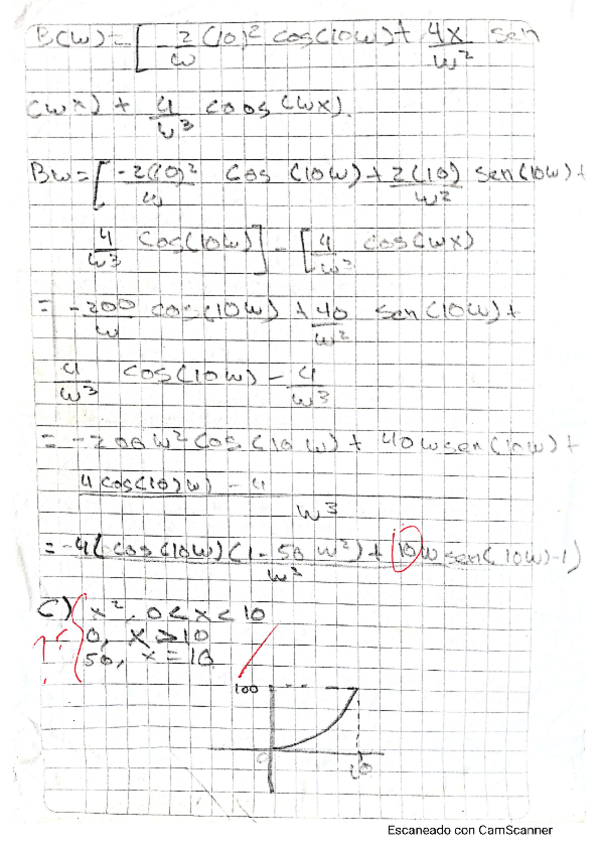 B(w) = [ -2/w (10)² cos(10w) + 4x/w² sen
(wx) + 4/w³ coos (wx).
Bw = [ -2(10)²/w cos (10w) + 2(10)/w² sen(10w) +
4/w³ cos(10w) ] - [ 4/w³ cos(wx)
= -200/w cos(10w) + 40/w² sen(10w) +
4/w³ cos(10w) - 4/w³
= -200w² cos(10w) + 40w sen(10w) +
4cos(10)w) - 4
w³
= -4( cos(10w)(1-50w²) + 10w sen(10w)-1)
w³
C) { x², 0<x<10
?¿ 0, x>10
50, x=10
100
0
10
Escaneado con CamScanner